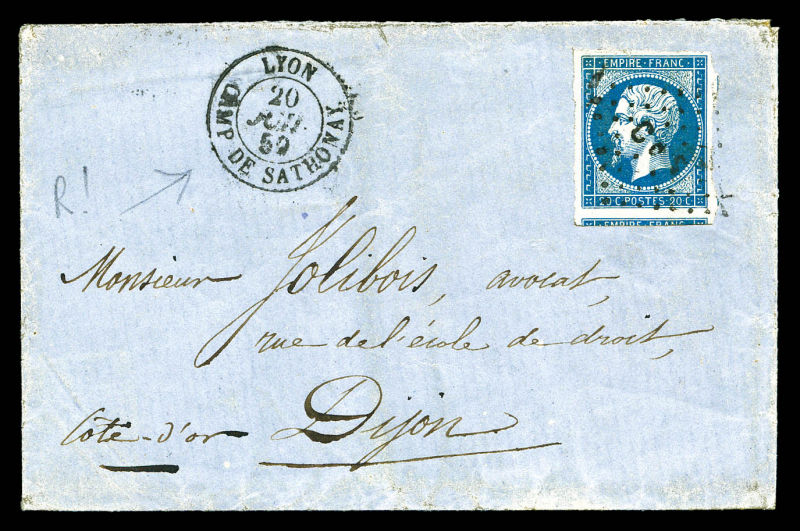 LYON
20
JUIL
59
CAMP DE SATHONAY
EMPIRE FRANC
20 C POSTES 20 C
EMPIRE FRANC
R!
Monsieur Jolibois, avocat,
rue de l'école de droit,
Côte-d'or Dijon